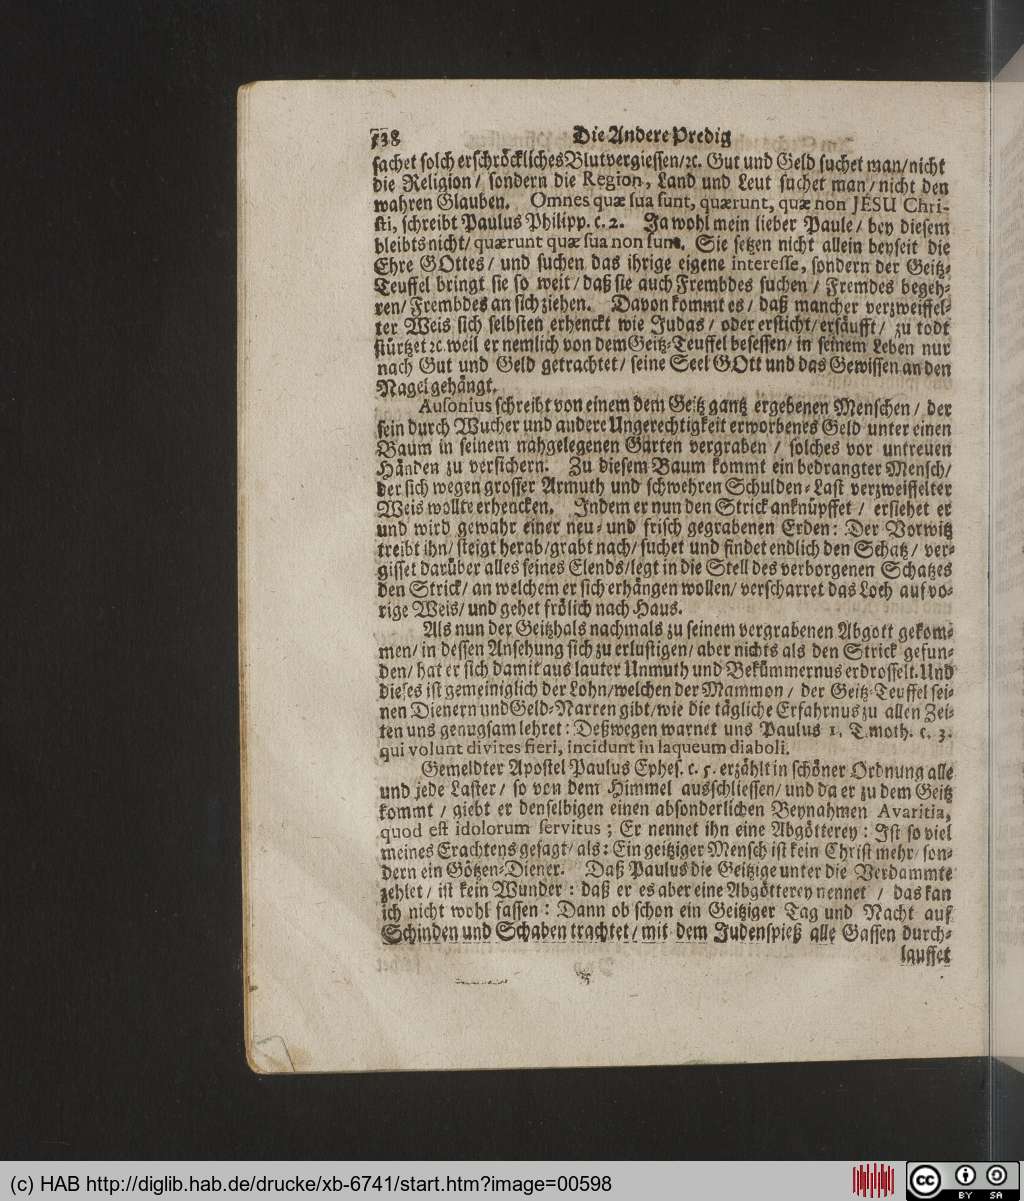 538 Die Andere Predig
sachet solch erschröckliches Blutvergiessen/ꝛc. Gut und Geld suchet man/nicht
die Religion/ sondern die Region, Land und Leut suchet man/nicht den
wahren Glauben. Omnes quæ sua sunt, quærunt, quæ non JESU Chri-
sti, schreibt Paulus Philipp. c. 2. Ja wohl mein lieber Paule/ bey diesem
bleibts nicht/ quærunt quæ sua non sunt. Sie setzen nicht allein beyseit die
Ehre GOttes/ und suchen das ihrige eigene interesse, sondern der Geitz-
Teuffel bringt sie so weit/ daß sie auch Frembdes suchen/ Fremdes begeh-
ren/ Frembdes an sich ziehen. Davon kommt es/ daß mancher verzweiffel-
ter Weis sich selbsten erhenckt wie Judas/ oder ersticht/ersäufft/ zu todt
stürtzet ꝛc. weil er nemlich von dem Geitz-Teuffel besessen/ in seinem Leben nur
nach Gut und Geld getrachtet/ seine Seel GOtt und das Gewissen an den
Nagel gehängt.
Ausonius schreibt von einem dem Geitz gantz ergebenen Menschen/ der
sein durch Wucher und andere Ungerechtigkeit erworbenes Geld unter einen
Baum in seinem nahgelegenen Garten vergraben/ solches vor untreuen
Händen zu versichern. Zu diesem Baum kommt ein bedrangter Mensch/
der sich wegen grosser Armuth und schwehren Schulden-Last verzweiffelter
Weis wollte erhencken. Indem er nun den Strick anknüpffet/ ersiehet er
und wird gewahr einer neu- und frisch gegrabenen Erden: Der Vorwitz
treibt ihn/ steigt herab/grabt nach/ suchet und findet endlich den Schatz/ ver-
gisset darüber alles seines Elends/legt in die Stell des verborgenen Schatzes
den Strick/ an welchem er sich erhängen wollen/ verscharret das Loch auf vo-
rige Weis/ und gehet frölich nach Haus.
Als nun der Geitzhals nachmals zu seinem vergrabenen Abgott gekom-
men/ in dessen Ansehung sich zu erlustigen/ aber nichts als den Strick gefun-
den/ hat er sich damit aus lauter Unmuth und Bekümmernus erdrosselt. Und
dieses ist gemeiniglich der Lohn/welchen der Mammon/ der Geitz-Teuffel sei-
nen Dienern und Geld-Narren gibt/wie die tägliche Erfahrnus zu allen Zei-
ten uns genugsam lehret: Deßwegen warnet uns Paulus 1. Timoth. c. 3.
qui volunt divites fieri, incidunt in laqueum diaboli.
Gemeldter Apostel Paulus Ephes. c. 5. erzählt in schöner Ordnung alle
und jede Laster/ so von dem Himmel ausschliessen/ und da er zu dem Geitz
kommt/ giebt er denselbigen einen absonderlichen Beynahmen Avaritia,
quod est idolorum servitus; Er nennet ihn eine Abgötterey: Ist so viel
meines Erachtens gesagt/ als: Ein geitziger Mensch ist kein Christ mehr/ son-
dern ein Götzen-Diener. Daß Paulus die Geitzige unter die Verdammte
zehlet/ ist kein Wunder: daß er es aber eine Abgötterey nennet/ das kan
ich nicht wohl fassen: Dann ob schon ein Geitziger Tag und Nacht auf
Schinden und Schaben trachtet/ mit dem Judenspieß alle Gassen durch-
lauffet
(c) HAB http://diglib.hab.de/drucke/xb-6741/start.htm?image=00598
cc BY SA